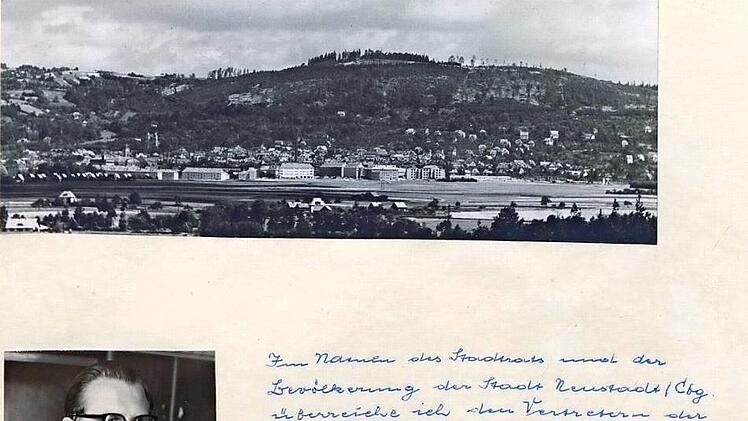 Im Namen des Stadtrats und der
Bevölkerung der Stadt Neustadt/Cbg.
überreiche ich den Vertretern der